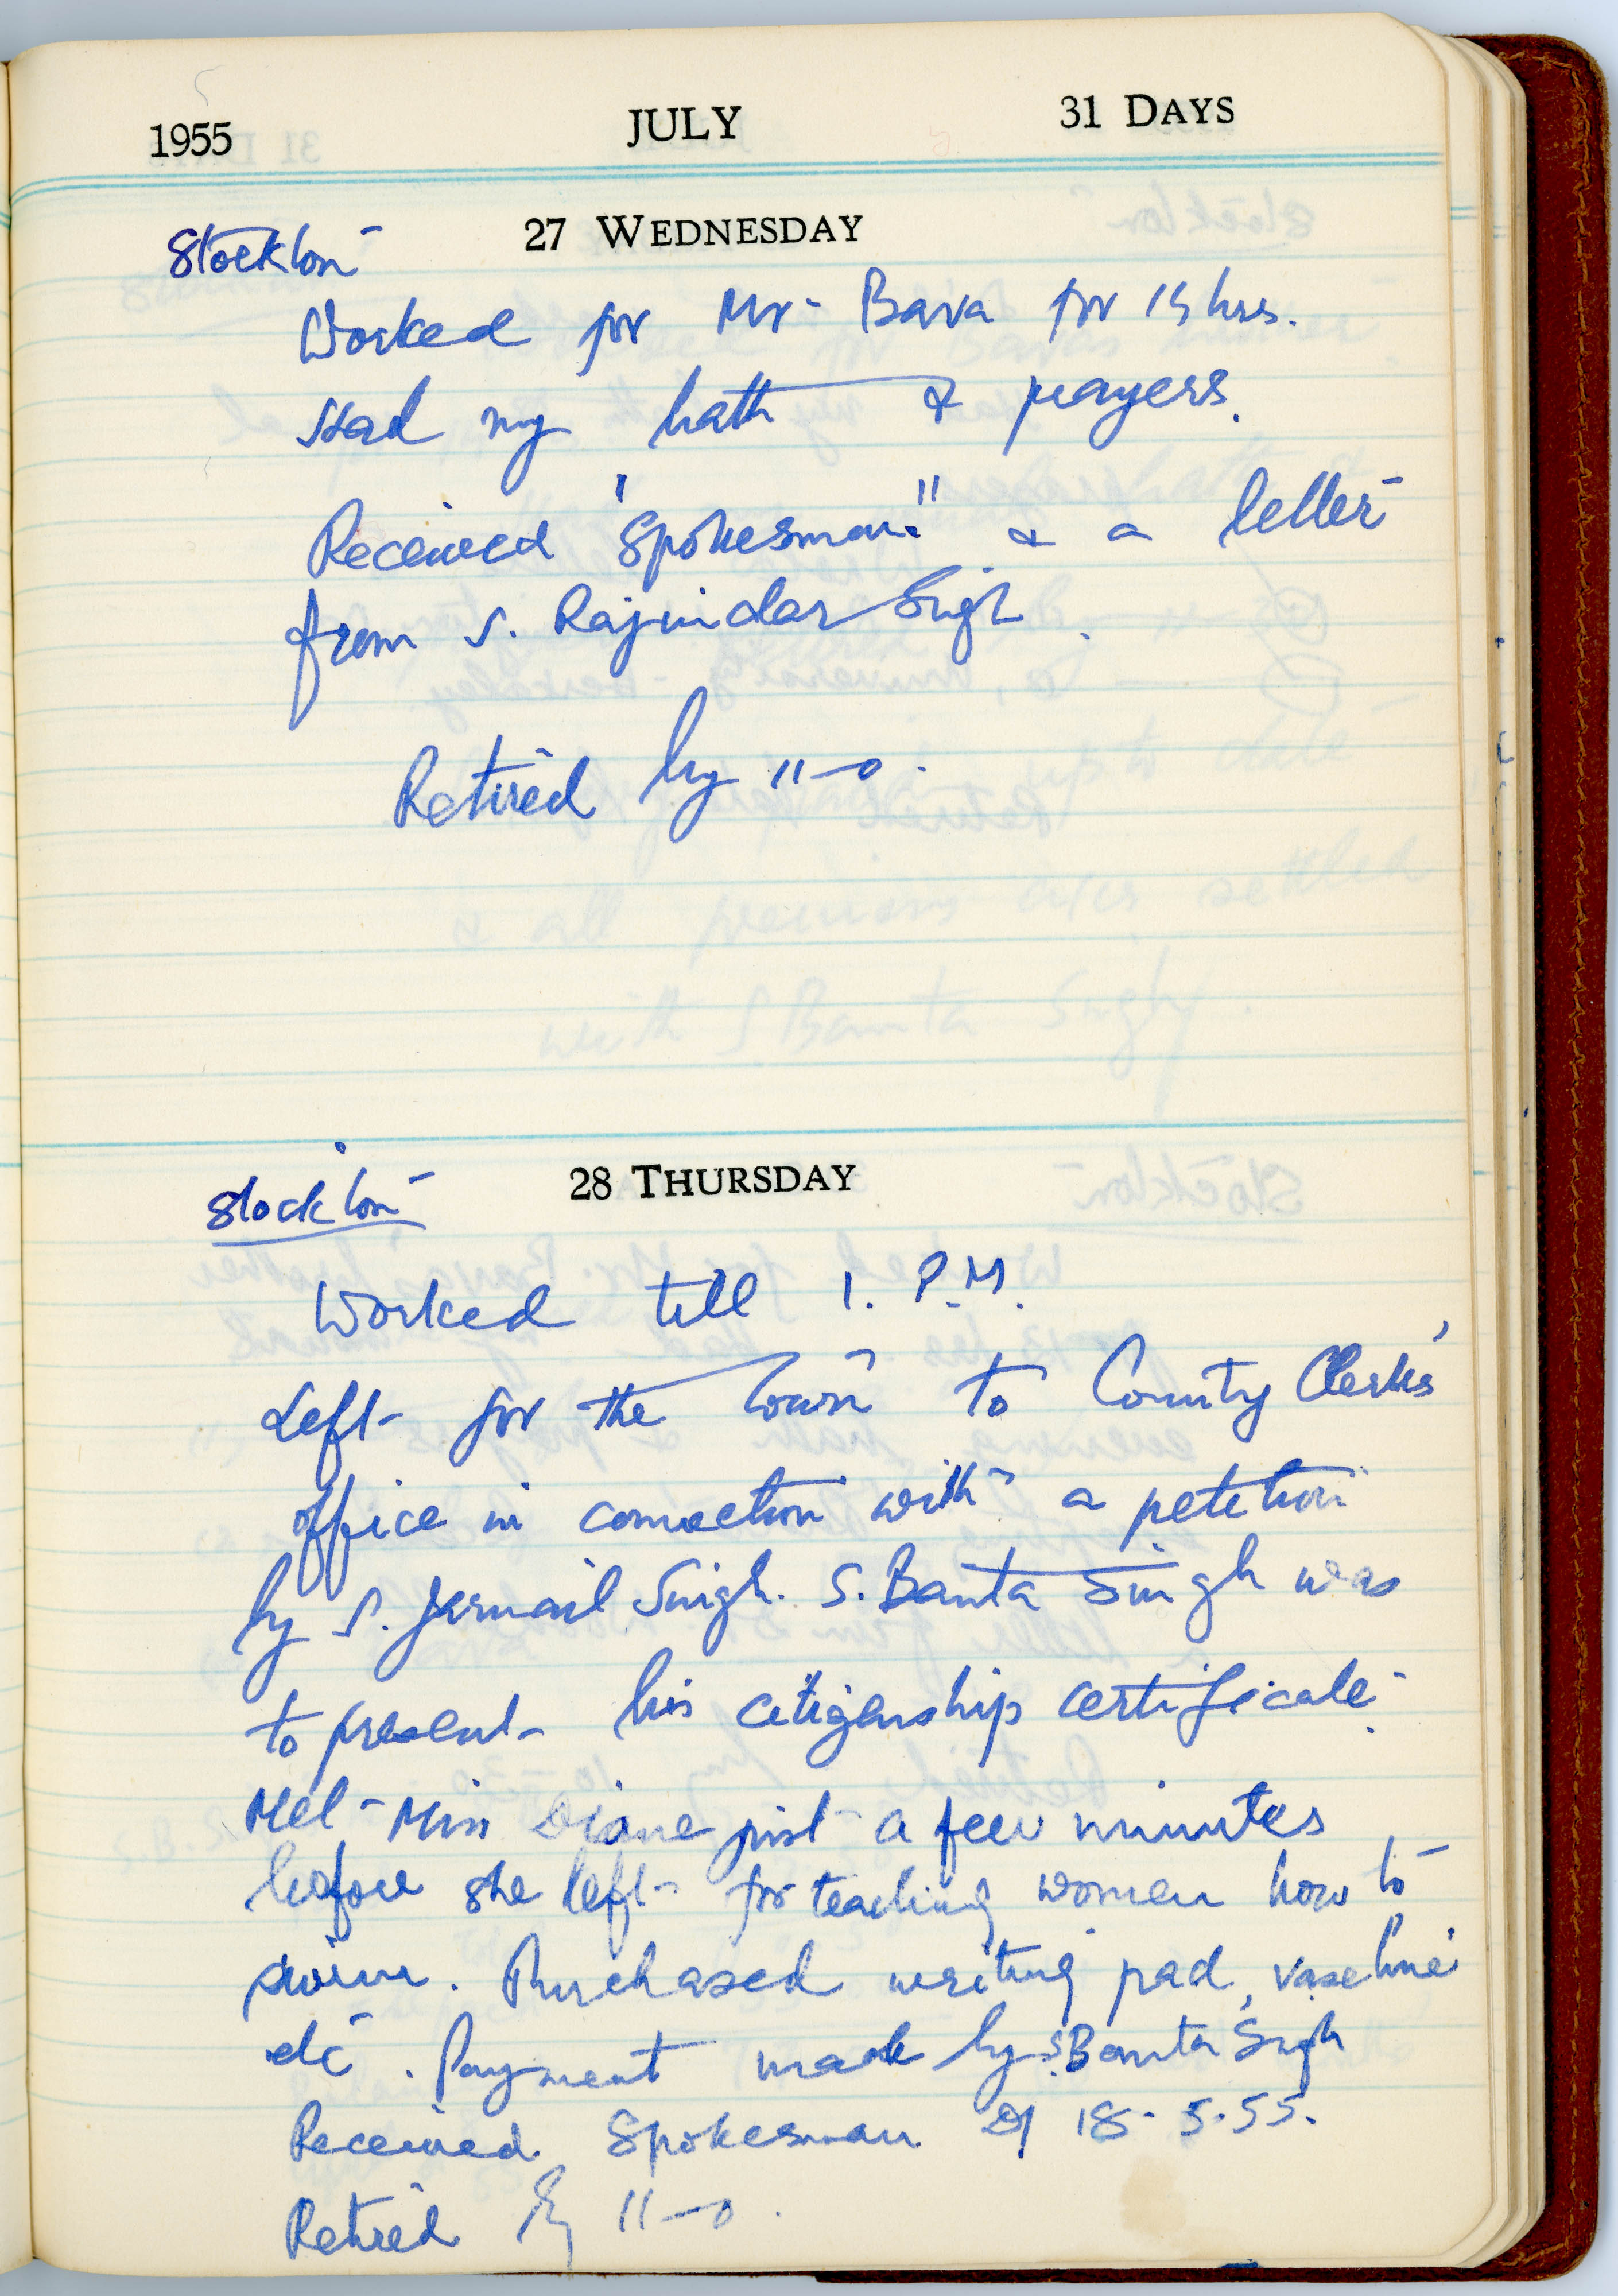 1955 JULY 31 DAYS
27 WEDNESDAY
Stockton
Worked for Mr. Bava for 15 hrs.
Had my bath & prayers.
Received "Spokesman." & a letter
from S. Rajindar Singh.
Retired by 11-0.
& all previous a/cs settled
with S Banta Singh.
28 THURSDAY
Stockton
Worked till 1. P.M.
Left for the town to County Clerks'
office in connection with a petetion
by S. Jarnail Singh. S. Banta Singh was
to present his citizenship certificate.
Met Miss Diane just a few minutes
before she left for teaching women how to
swim. Purchased writing pad, vaseline
etc. Payment made by S. Banta Singh
Received Spokesman D/ 18-5-55.
Retired by 11-0.